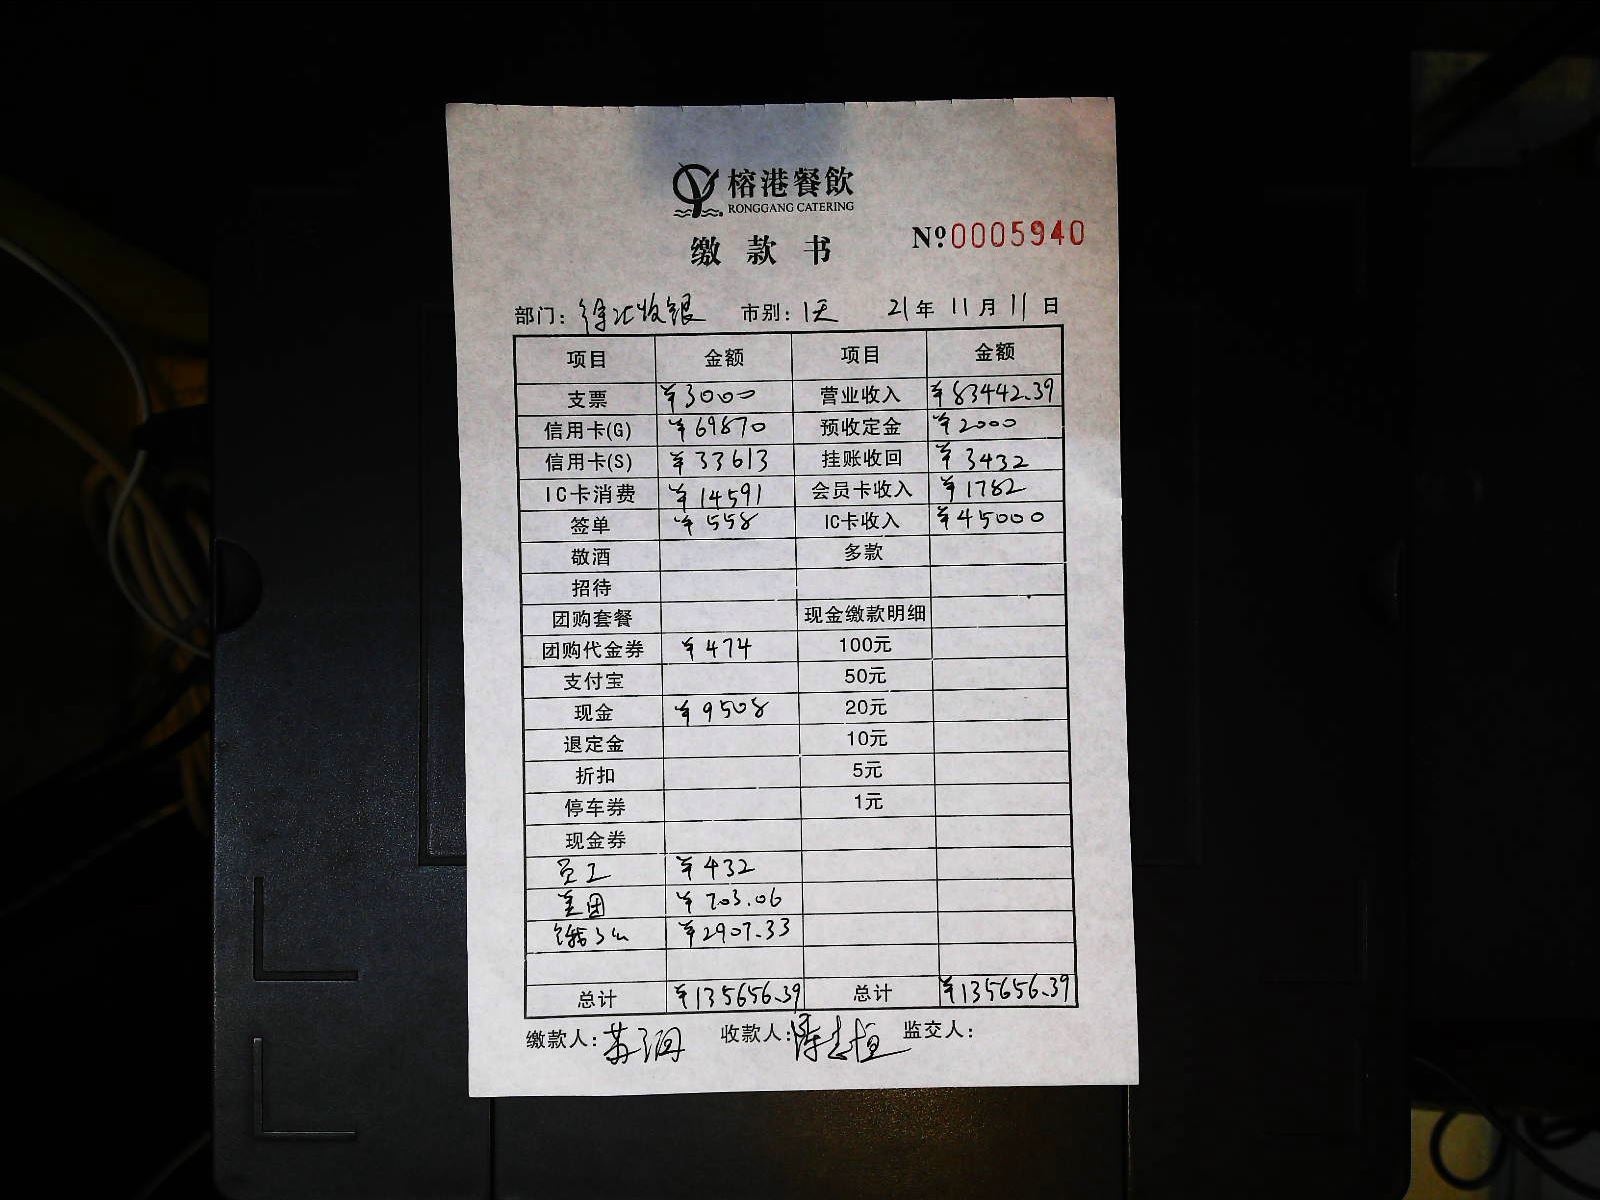 榕港餐飲
RONGGANG CATERING
缴款书 №0005940
部门: 徐汇收银 市别: 1天 21年 11月 11日
项目 金额 项目 金额
支票 ¥3000 营业收入 ¥83442.39
信用卡(G) ¥69870 预收定金 ¥2000
信用卡(S) ¥33613 挂账收回 ¥3432
IC卡消费 ¥14591 会员卡收入 ¥1782
签单 ¥558 IC卡收入 ¥45000
敬酒 多款
招待
团购套餐 现金缴款明细
团购代金券 ¥474 100元
支付宝 50元
现金 ¥9508 20元
退定金 10元
折扣 5元
停车券 1元
现金券
员工 ¥432
美团 ¥703.06
饿了么 ¥2907.33
总计 ¥135656.39 总计 ¥135656.39
缴款人: 收款人: 监交人: